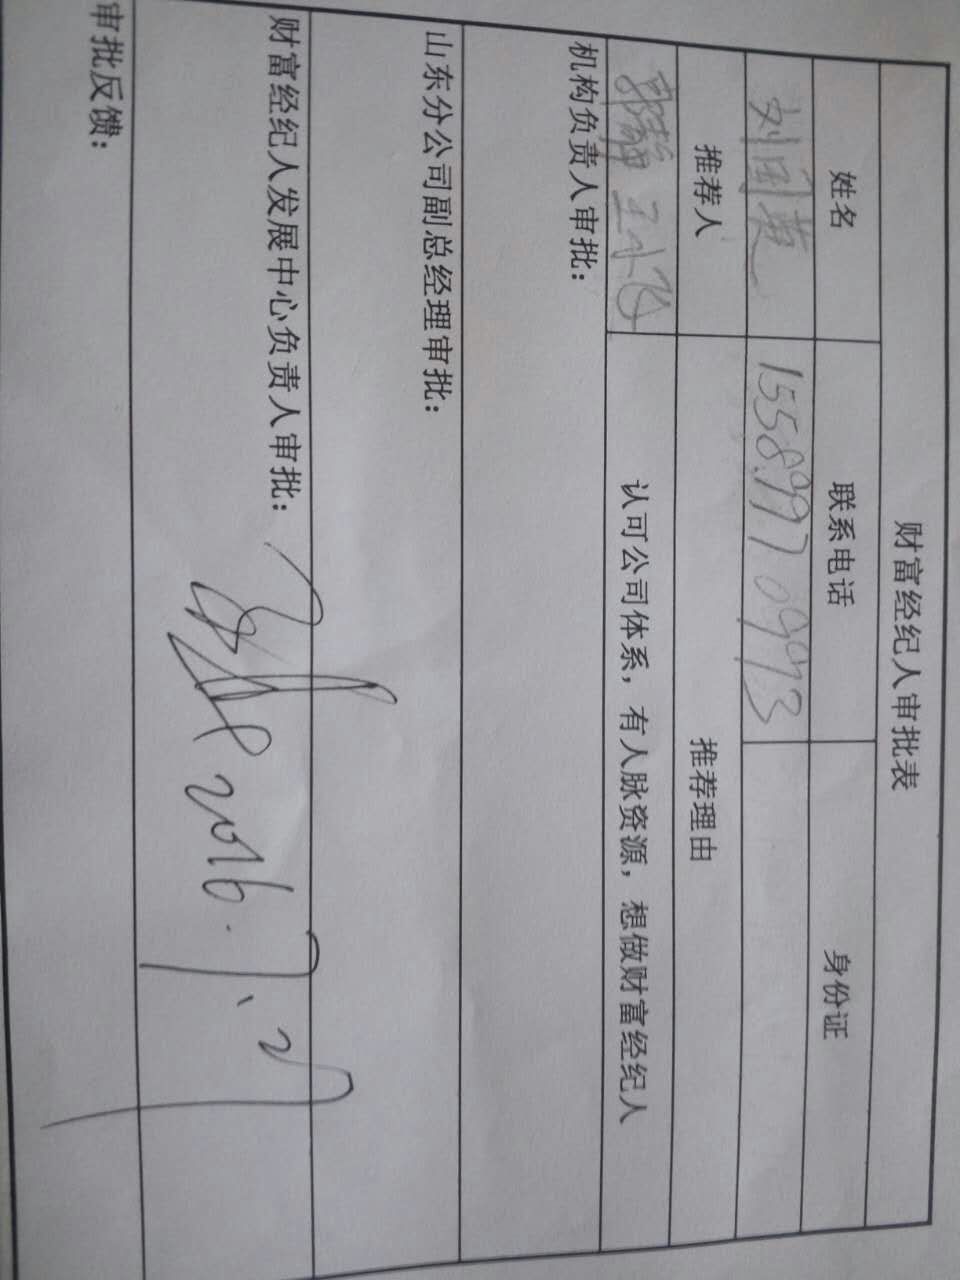 财富经纪人审批表
姓名 联系电话 身份证
刘国英 15589970993
推荐人 推荐理由
王小飞 认可公司体系，有人脉资源，想做财富经纪人
机构负责人审批：
山东分公司副总经理审批：
财富经纪人发展中心负责人审批：
2016.7.29
审批反馈：